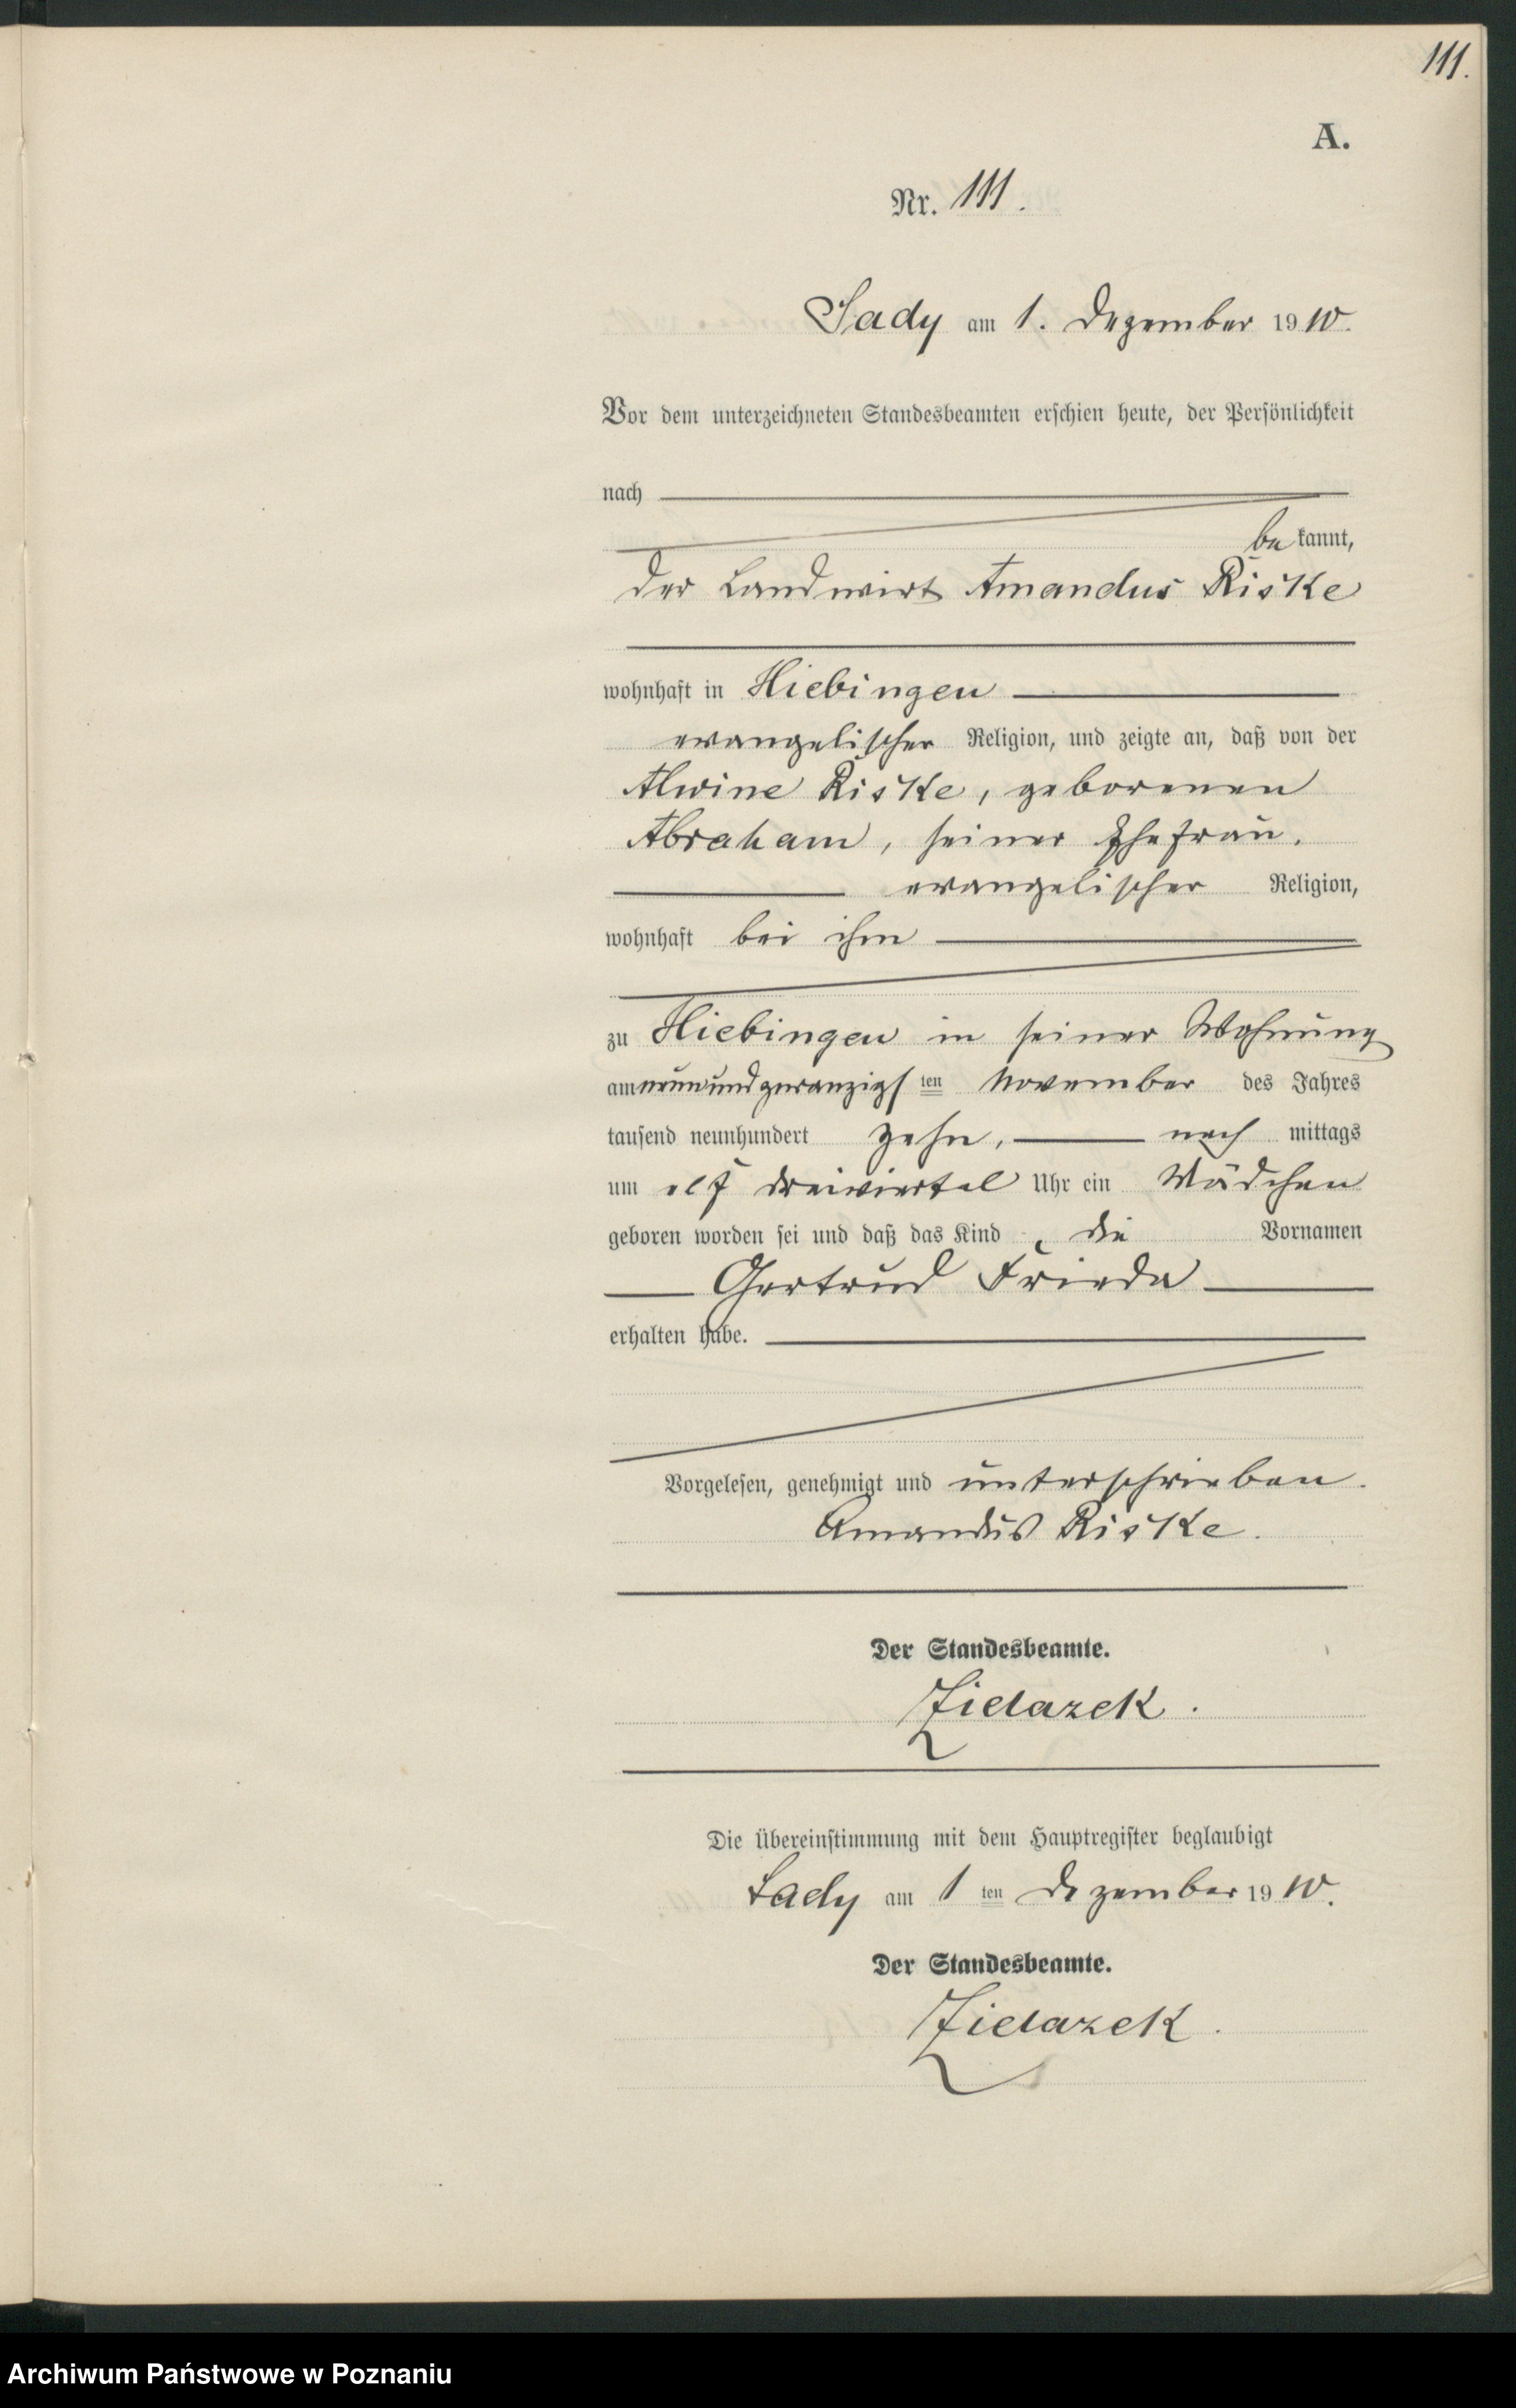 111.
A.
Nr. 111.
Sady am 1. Dezember 1910.
Vor dem unterzeichneten Standesbeamten erschien heute, der Persönlichkeit
nach
be kannt,
der Landwirt Amandus Riske
wohnhaft in Hiebingen
evangelischer Religion, und zeigte an, daß von der
Alwine Riske, geborenen
Abraham, seiner Ehefrau.
evangelischer Religion,
wohnhaft bei ihm
zu Hiebingen in seiner Wohnung
am neunundzwanzigsten November des Jahres
tausend neunhundert zehn, nach mittags
um elf dreiviertel Uhr ein Mädchen
geboren worden sei und daß das Kind die Vornamen
Gertrud Frieda
erhalten habe.
Vorgelesen, genehmigt und unterschrieben.
Amandus Riske.
Der Standesbeamte.
Zielazek.
Die Übereinstimmung mit dem Hauptregister beglaubigt
Sady am 1 ten Dezember 1910.
Der Standesbeamte.
Zielazek.
Archiwum Państwowe w Poznaniu